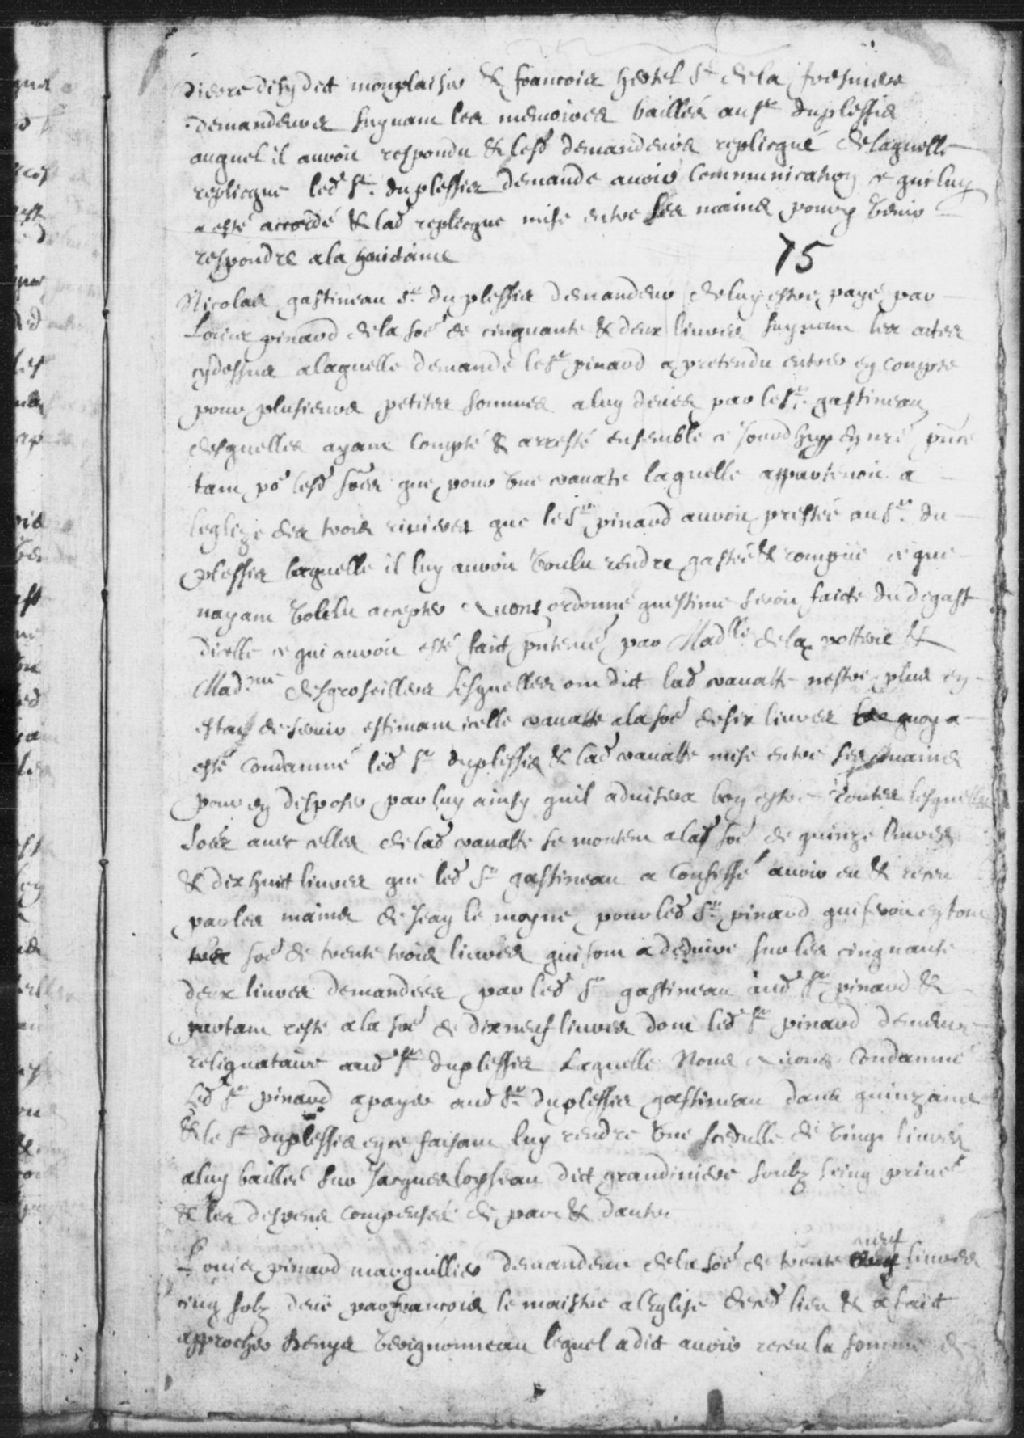 Pierre disy dit monplaisir & francois hertel Sr de la fresniere
demandeurs suyvant les memoires baillés au Sr duplessis
auquel il auroit respondu & lesd demandeurs replicqué de laquelle
replicque led Sr duplessis demande avoir communication ce qui luy
a esté accordé & lad replicque mise entre ses mains pour y venir
respondre a la huictaine
75
Nicolas gastineau Sr duplessis demandeur de luy estre payé par
Louis pinard de la soe de cinquante & deux livres suyvant les actes
cydessus a laquelle demande le Sr pinard a pretendu entrer en compte
pour plusieurs petites sommes a luy deues par le Sr gastineau
desquelles ayant compté & arresté ensemble ce jourdhuy en nre pnce
tant po lesd soes que pour une cavatte laquelle appartenoit a
leglize des trois rivieres que le Sr pinard auroit prestée au Sr du
plessis laquelle il luy auroit voulu rendre gastée & rompue ce que
nayant volulu accepter avons ordonné questime seroit faicte du degast
dicelle ce qui auroit esté faict par Madlle de la potterie &
Madme desgroseillers lesquelles ont dict lad cavatte nestre plus en
estat de servir estimant icelle cavatte a la soe de six livres quoy a
esté condamné led Sr duplessis & lad cavatte mise entre ses mains
pour en disposer par luy ainsy quil advisera bon estre toutes lesquelles
soes avec celles de lad cavatte se montent a lad soe de quinze livres
& dix huict livres que led Sr gastineau a confessé avoir eu & receu
par les mains de Jean le moyne pour led Sr pinard qui feroit en tout
soe de trente trois livres qui sont a deduire sur les cinquante
deux livres demandees par led Sr gastineau aud Sr pinard &
partant reste a la soe de dix neuf livres dont led Sr pinard demeure
reliquataire aud Sr duplessis Laquelle Nous avons condamné
led Sr pinard a payer aud Sr duplessis gastineau dans quinzaine
& le Sr duplessis en ce faisant luy rendre une scedulle de vingt livres
a luy baillée sur Jacques loyseau dict grandiniere soubz seing privé
& les despens compensés de part & dautre
Louis pinard marguillier demandeur de la soe de trente neuf livres
cinq solz deue par francois le maistre a leglise de ced lieu & a faict
approcher Benys vevignonneau lequel a dit avoir receu la somme de